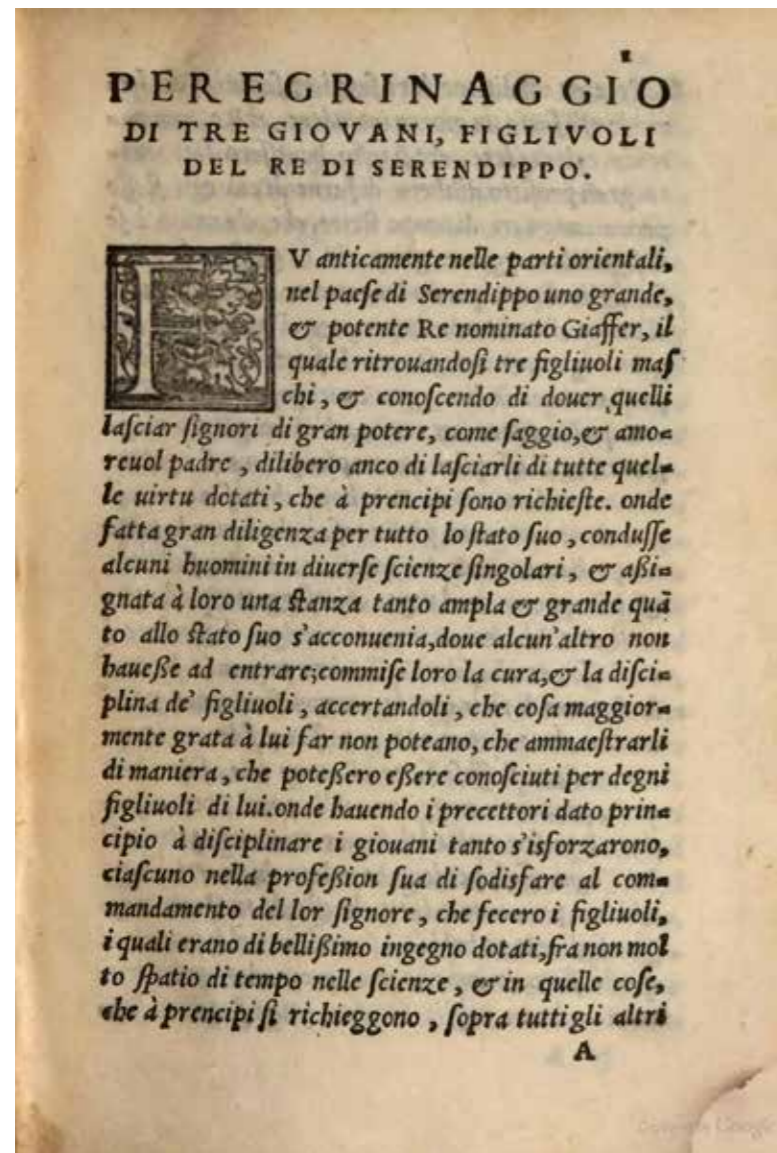 1
PEREGRINAGGIO
DI TRE GIOVANI, FIGLIVOLI
DEL RE DI SERENDIPPO.
FV anticamente nelle parti orientali,
nel paeſe di Serendippo uno grande,
& potente Re nominato Giaffer, il
quale ritrouandoſi tre figliuoli maſ
chi, & conoſcendo di douer quelli
laſciar ſignori di gran potere, come ſaggio, & amo-
reuol padre, dilibero anco di laſciarli di tutte quel-
le uirtu dotati, che à prencipi ſono richieſte. onde
fatta gran diligenza per tutto lo ſtato ſuo, conduſſe
alcuni huomini in diuerſe ſcienze ſingolari, & aßi-
gnata à loro una ſtanza tanto ampla & grande quã
to allo ſtato ſuo s'acconuenia, doue alcun'altro non
haueße ad entrare; commiſe loro la cura, & la diſci-
plina de' figliuoli, accertandoli, che coſa maggior-
mente grata à lui far non poteano, che ammaeſtrarli
di maniera, che poteßero eßere conoſciuti per degni
figliuoli di lui. onde hauendo i precettori dato prin-
cipio à diſciplinare i giouani tanto s'isforzarono,
ciaſcuno nella profeßion ſua di ſodisfare al com-
mandamento del lor ſignore, che fecero i figliuoli,
i quali erano di bellißimo ingegno dotati, fra non mol
to ſpatio di tempo nelle ſcienze, & in quelle coſe,
che à prencipi ſi richieggono, ſopra tutti gli altri
A
Google